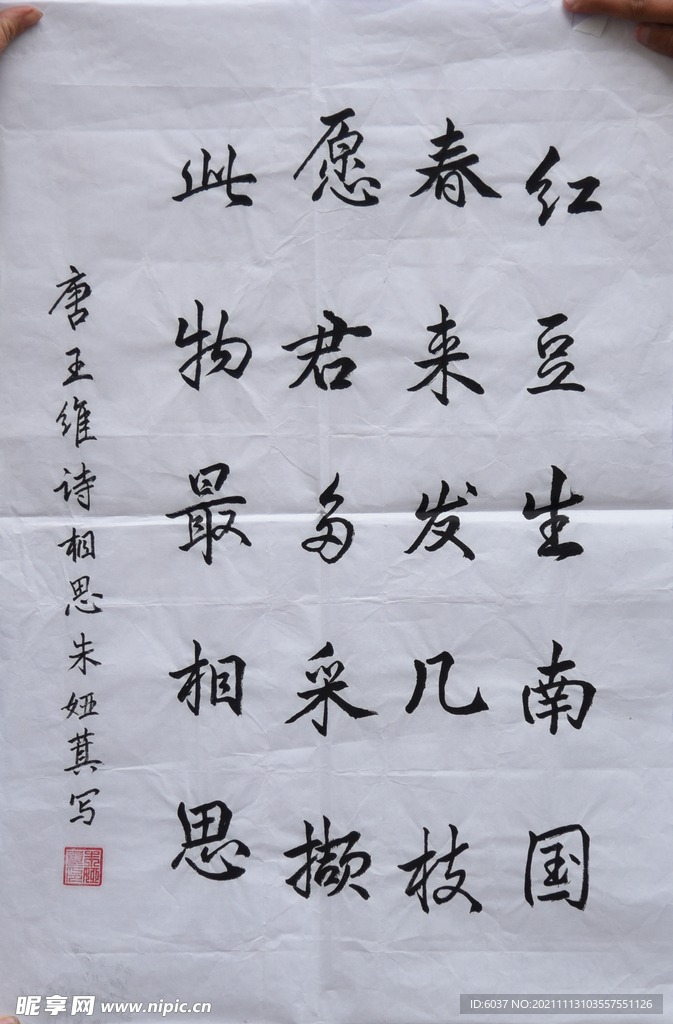 红豆生南国
春来发几枝
愿君多采撷
此物最相思
唐王维诗相思朱娅萁写
昵享网 www.nipic.cn
ID:6037 NO:20211113103557551126